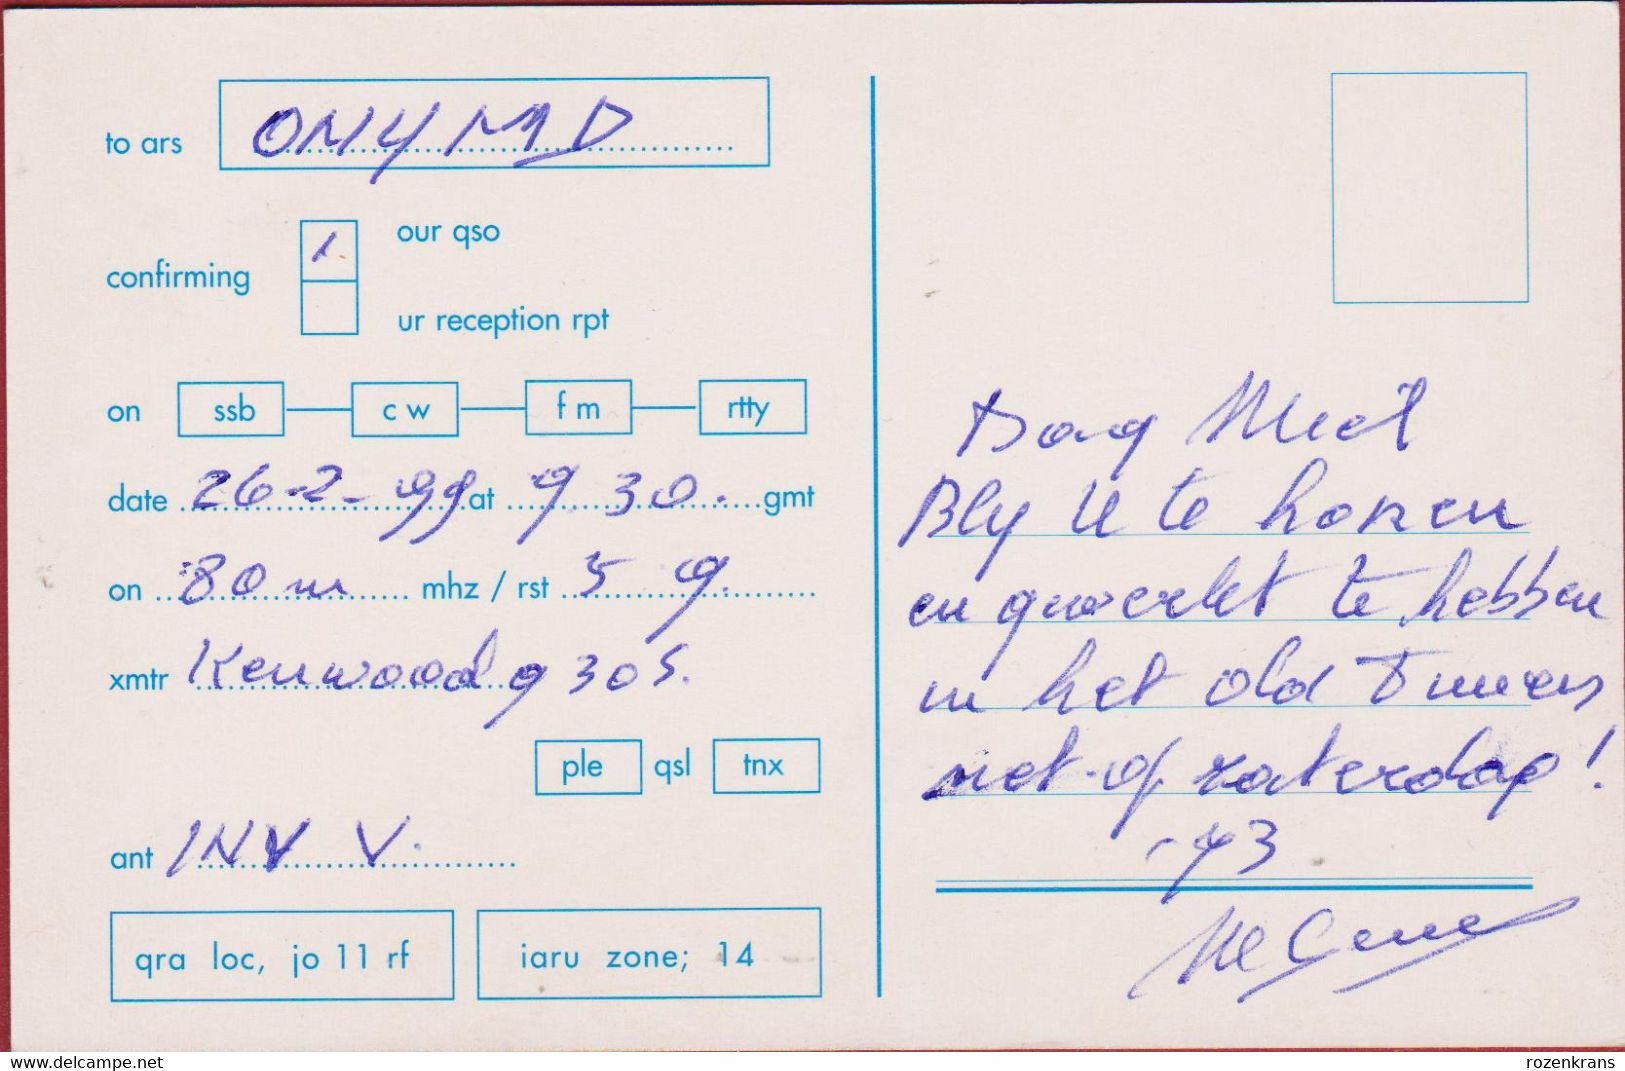 to ars ONYMD
confirming
1.
our qso
ur reception rpt
on ssb cw fm rtty
date 26-2-99 at 9.30. gmt
on 80 m mhz / rst 5 9.
xmtr Kenwood 930S.
ple qsl tnx
ant INV V.
qra loc, jo 11 rf
iaru zone; 14
Dag Miel
Bly U te horen
en gewerkt te hebben
in het old Timers
net op zaterdag!
-73
www.delcampe.net
rozenkrans